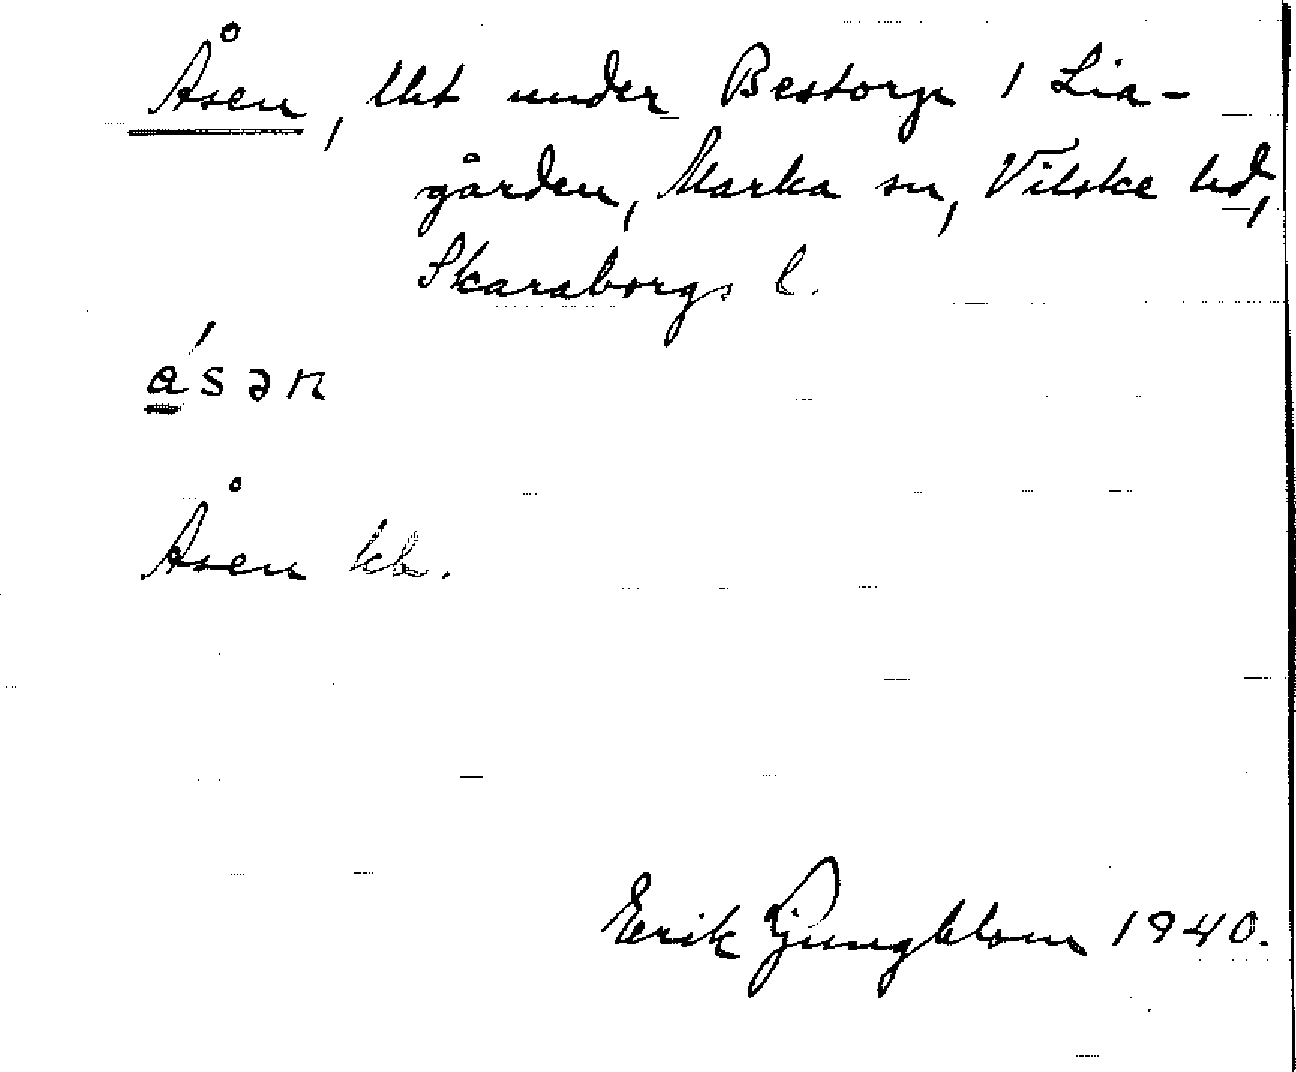 Åsen, lht under Bestorp 1 Lia-
gården, Marka sn, Vilske hd,
Skaraborgs l.
åsən
Åsen kb.
Erik Ljungblom 1940.